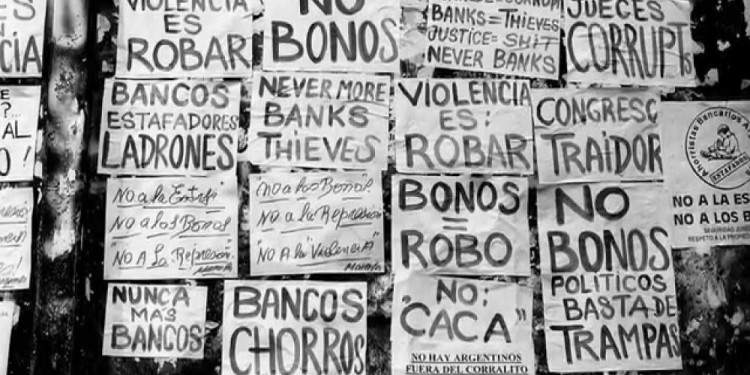 VIOLENCIA
ES
ROBAR
NO
BONOS
BANKS=THIEVES
JUSTICE=SHIT
NEVER BANKS
JUECES
CORRUPTs
BANCOS
ESTAFADORES
LADRONES
NEVER MORE
BANKS
THIEVES
VIOLENCIA
ES:
ROBAR
CONGRESO
TRAiDOR
Ahorristas Bancarios
ESTAFADOS
AL
NO A LA ES
NO A LOS B
No a la Estafa
No a los Bonos
"No A La Represion"
No a los Bonos
No a la Represion
"No A la "Violencia"
BONOS
=
ROBO
NO
BONOS
POLITICOS
BASTA DE
TRAMPAS
NUNCA
MAS
BANCOS
BANCOS
CHORROS
NO:
"CACA"
NO HAY ARGENTINOS
FUERA DEL CORRALITO